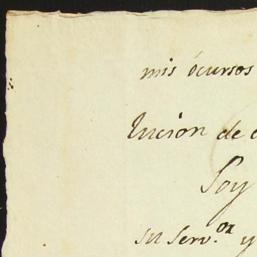 mis ócursos
lucion de
Soy
su serv.or y